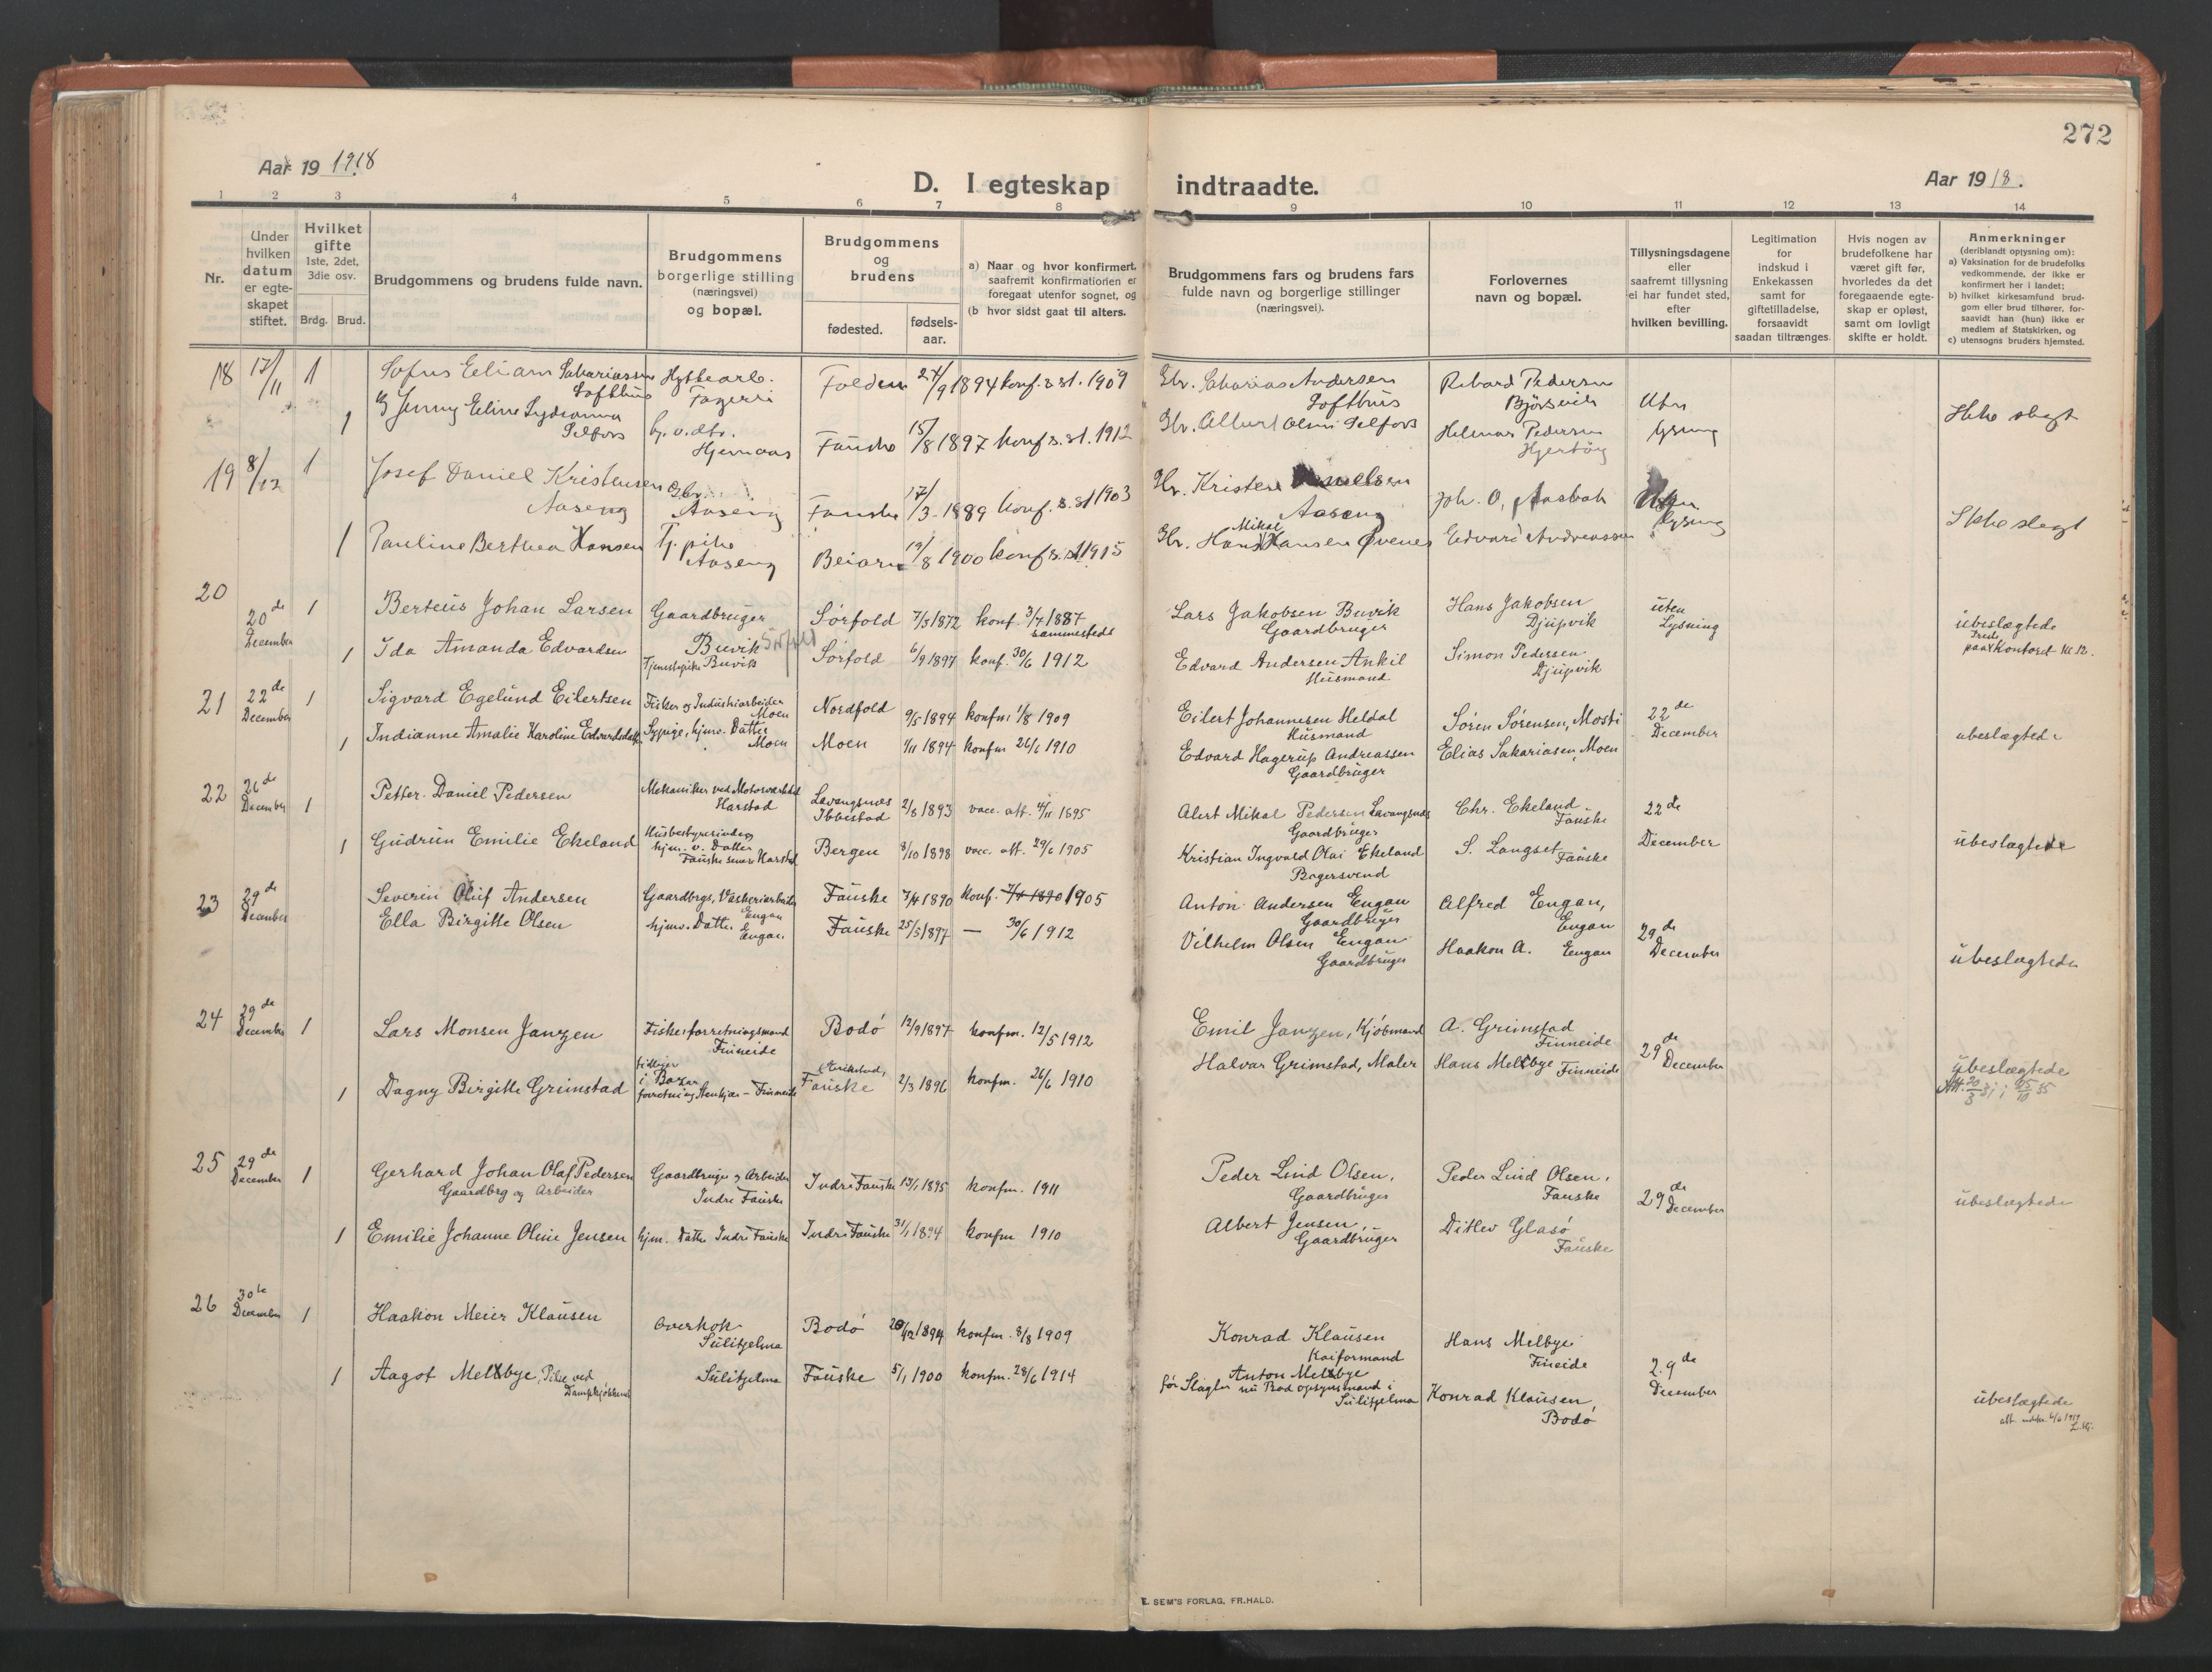 272
Aar 19 1918
D. I egteskap indtraadte.
Aar 19 18.
1 2 3 4 5 6 7 8 9 10 11 12 13 14
Nr.
Under hvilken datum er egte-skapet stiftet.
Hvilket gifte
1ste, 2det, 3die osv.
Brdg. Brud.
Brudgommens og brudens fulde navn.
Brudgommens borgerlige stilling (næringsvei) og bopæl.
Brudgommens og brudens
fødested.
fødsels-aar.
a) Naar og hvor konfirmert, saafremt konfirmationen er foregaat utenfor sognet, og
(b hvor sidst gaat til alters.
Brudgommens fars og brudens fars fulde navn og borgerlige stillinger (næringsvei).
Forlovernes navn og bopæl.
Tillysningsdagene eller saafremt tillysning ei har fundet sted, efter hvilken bevilling.
Legitimation for indskud i Enkekassen samt for giftetilladelse, forsaavidt saadan tiltrænges.
Hvis nogen av brudefolkene har været gift før, hvorledes da det foregaaende egte-skap er opløst, samt om lovligt skifte er holdt.
Anmerkninger
(deriblandt opjysning om):
a) Vaksination for de brudefolks vedkommende, der ikke er konfirmert her i landet;
b) hvilket kirkesamfund brud-gom eller brud tilhører, for-saavidt han (hun) ikke er medlem af Statskirken, og
c) utensogns bruders hjemsted.
18 17/11 1 Sofus Eeliam Sakariassen Softhus
Folden 27/9 1894 konf. s. st. 1909
Gbr. Sakarias Andersen Softhus
Rikard Pedersen Bjørsvik
Uten lysning
Ikke slegt
1 Jenny Eeline Lydianna Selfors
hj. v. dtr.
Fauske 15/8 1897 konf s. st. 1912
Gbr. Albert Olsen Selfors
Helmer Pedersen
19 8/12 1 Josef Daniel Kristensen Aaseng
Gbr. Aaseng
Fauske 17/3 1889 konf. s. st 1903
Gbr. Kristen Aaseng
Joh. O. Aasbak
lysning
Ikke slegt
1 Pauline Berthea Hansen
Tj. pike Aaseng
Beiarn 19/8 1900 konf s. st 1915
Gbr. Hans Mikal Hansen Øvenes
Edvard Andreassen
20 20de December 1 Berteus Johan Larsen
Gaardbruger Buvik Sørfold
Sørfold 7/5 1872 konf. 3/7 1887 sammesteds
Lars Jakobsen Buvik Gaardbruger
Hans Jakobsen Djupvik
uten Lysning
ubeslægtede
paa Kontoret kl 12.
1 Ida Amanda Edvardsen
Tjenestepike Buvik
Sørfold 6/9 1897 konf. 30/6 1912
Edvard Andersen Ankil Husmand
Simon Pedersen Djupvik
21 22de December 1 Sigvard Egelund Eilertsen
Fisker og Industriarbeider Moen
Nordfold 9/5 1894 konfm 1/8 1909
Eilert Johannesen Heldal Husmand
Søren Sørensen, Mosti
22de December
ubeslægtede
1 Indianne Amalie Karoline Edvardsdatter
Sypige, hjmv. Datter Moen
Moen 1/11 1894 konfm 26/6 1910
Edvard Hagerup Andreassen Gaardbruger
Elias Sakariasen, Moen
22 26de December 1 Petter Daniel Pedersen
Mekaniker ved Motorværksted Harstad
Lavangsnes Ibbestad 2/8 1893 vacc. att. 4/11 1895
Alert Mikal Pedersen Lavangsnes Gaardbruger
Chr. Ekeland Fauske
22de December
ubeslægtede
1 Gudrun Emilie Ekeland
Husbestyrerinde, hjm. v. Datter Fauske senere Harstad
Bergen 8/10 1898 vacc. att. 29/6 1905
Kristian Ingvald Olai Ekeland Bagersvend
S. Langset Fauske
23 29de December Severin Oluf Andersen
Gaardbrgs, Væskeriarbeider Engan
Fauske 7/4 1890 konf. 7/4 1890 1905
Anton Andersen Engan Gaardbruger
Alfred Engan, Engan
29de December
ubeslægtede
Ella Birgitte Olsen
hjmv. Datter Engan
Fauske 25/5 1897 — 30/6 1912
Vilhelm Olsen Engan Gaardbruger
Haakon A. Engan
24 29de December 1 Lars Monsen Janzen
Fiskeforretningsmand Finneide
Bodø 12/9 1897 konfm. 12/5 1912
Emil Janzen, Kjøbmand
A. Grimstad Finneide
29de December
ubeslægtede
1 Dagny Birgitte Grimstad
i Bazar forretning Stenkjær – Finneide
Fauske 2/3 1896 konfm. 26/6 1910
Halvar Grimstad, Maler
Hans Melbye Finneide
25 29de December 1 Gerhard Johan Olaf Pedersen
Gaardbrg og Arbeider
Gaardbruger og Arbeider Indre Fauske
Indre Fauske 13/1 1895 konfm. 1911
Peder Lind Olsen, Gaardbruger
Peder Lind Olsen, Fauske
29de December
ubeslægtede
1 Emilie Johanne Oline Jensen
hjm. Datter Indre Fauske
Indre Fauske 31/1 1894 konfm 1910
Albert Jensen, Gaardbruger
Ditlev Glasø Fauske
26 30te December 1 Haakon Meier Klausen
Overkok Sulitjelma
Bodø 28/12 1894 konfm. 8/8 1909
Konrad Klausen Kaiformand
Hans Melbye Fineide
29de December
1 Aagot Melbye, Pike ved Dampkjøkkenet
Sulitjelma
Fauske 5/1 1900 konfm. 28/6 1914
Anton Melbye før Slagter nu Bad opsynsmand i Sulitjelma
Konrad Klausen, Bodø
ubeslægtede
E. SEM'S FORLAG, FR.HALD.